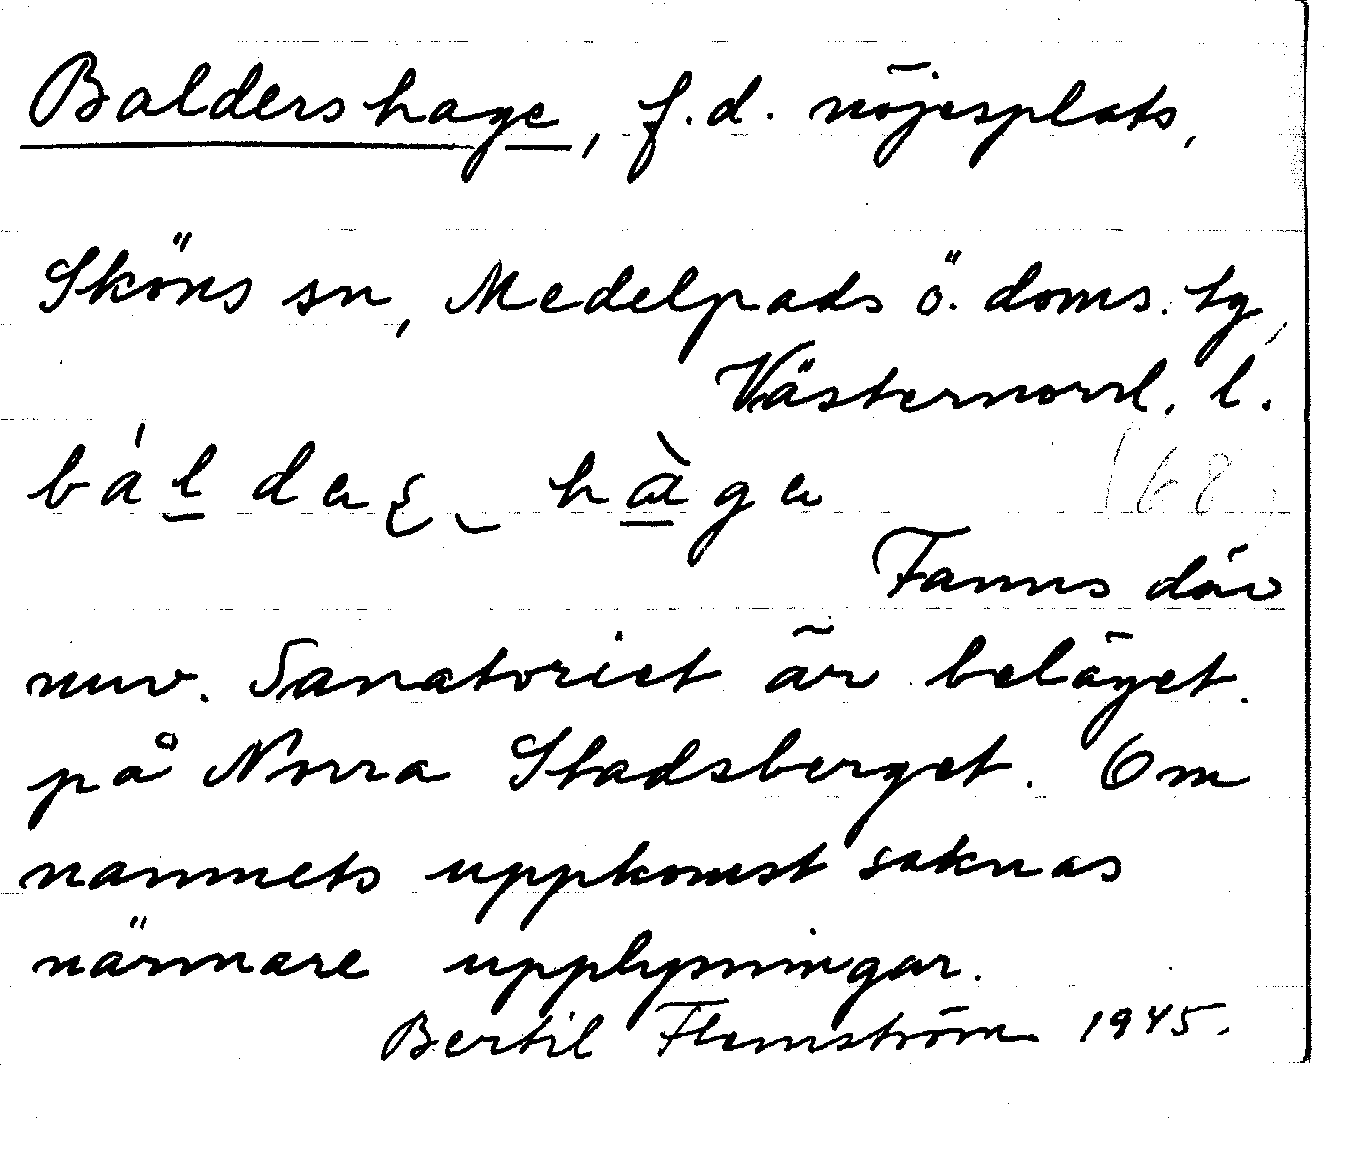 Baldershage, f.d. nöjesplats,
Sköns sn, Medelpads ö. doms. tg,
Västernorrl. l.
168
Fanns där
nuv. Sanatoriet är beläget
på Norra Stadsberget. Om
namnets uppkomst saknas
närmare upplysningar.
Bertil Flemström 1945.